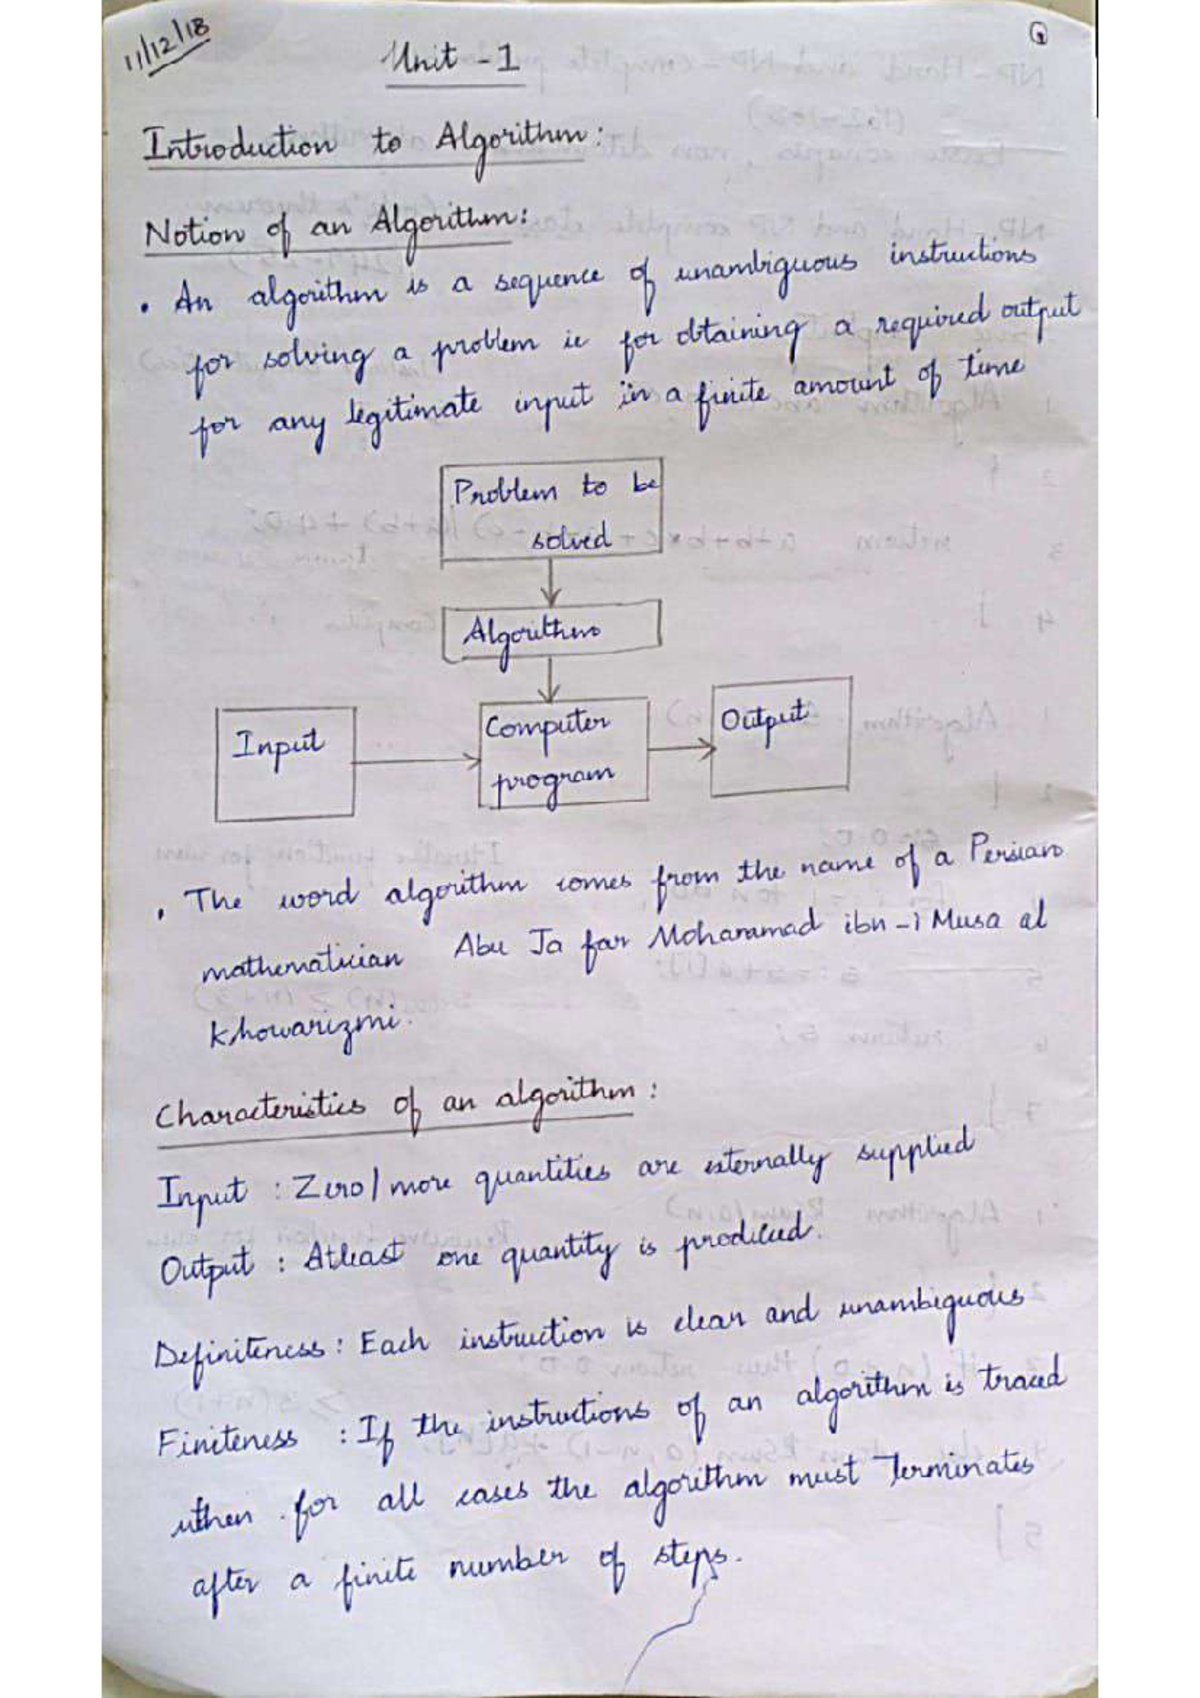 11/12/18
Unit - 1
Introduction to Algorithm:
Notion of an Algorithm:
• An algorithm is a sequence of unambiguous instructions
for solving a problem ie for obtaining a required output
for any legitimate input in a finite amount of time
Problem to be
solved
Algorithm
Input
Computer
program
Output
• The word algorithm comes from the name of a Persian
mathematician Abu Ja far Mohammad ibn-i Musa al
khowarizmi.
Characteristics of an algorithm:
Input : Zero/more quantities are externally supplied
Output : Atleast one quantity is produced.
Definiteness: Each instruction is clear and unambiguous
Finiteness : If the instructions of an algorithm is traced
then for all cases the algorithm must Terminates
after a finite number of steps.